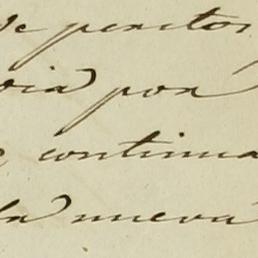 de peritos
via por
continua
la nueva